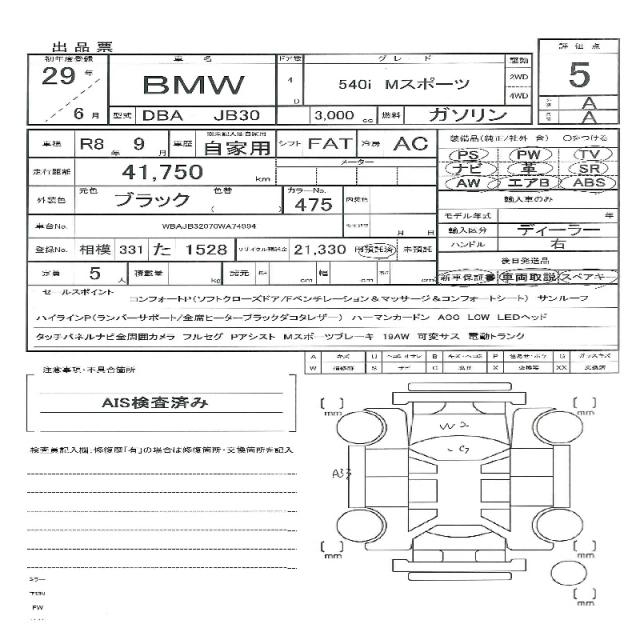 出品票
初年度登録 車名 ドア数 グレード 駆動 評価点
29年 BMW 4 D 540i Mスポーツ 2WD 4WD 5
6月 型式 DBA JB30 3,000 cc 燃料 ガソリン A A
車検 R8年 9月 車歴 自家用 シフト FAT 冷房 AC 装備品(純正/社外 含) ○をつける
走行距離 41,750 km メーター PS PW TV
ナビ 革 SR
外装色 元色 ブラック 色替 ( ) カラーNo. 475 内装色 AW エアB ABS
輸入車のみ
車台No. WBAJB32070WA74994 月 日 モデル年式 年
登録No. 相模 331 た 1528 リサイクル預託金 21,330 預託済 未預託 輸入区分 ディーラー
ハンドル 右
定員 5人 積載量 kg 諸元 長さ cm 幅 cm 高さ cm 後日発送品
新車保証書 車両取説 スペアキー
セールスポイント
コンフォートP(ソフトクローズドア/Fベンチレーション&マッサージ&コンフォートシート) サンルーフ
ハイラインP(ランバーサポート/全席ヒーターブラックダコタレザー) ハーマンカードン ACC LCW LEDヘッド
タッチパネルナビ全周囲カメラ フルセグ Pアシスト Mスポーツブレーキ 19AW 可変サス 電動トランク
A キズ U B キズ・ヘコミ P G ガラスキズ
W S サビ C X XX
注意事項・不具合箇所
AIS検査済み
検査員記入欄:修復歴「有」の場合は修復箇所・交換箇所を記入
[ ] mm [ ] mm
W2
C7
A33
[ ] mm [ ] mm
[ ] mm
PW